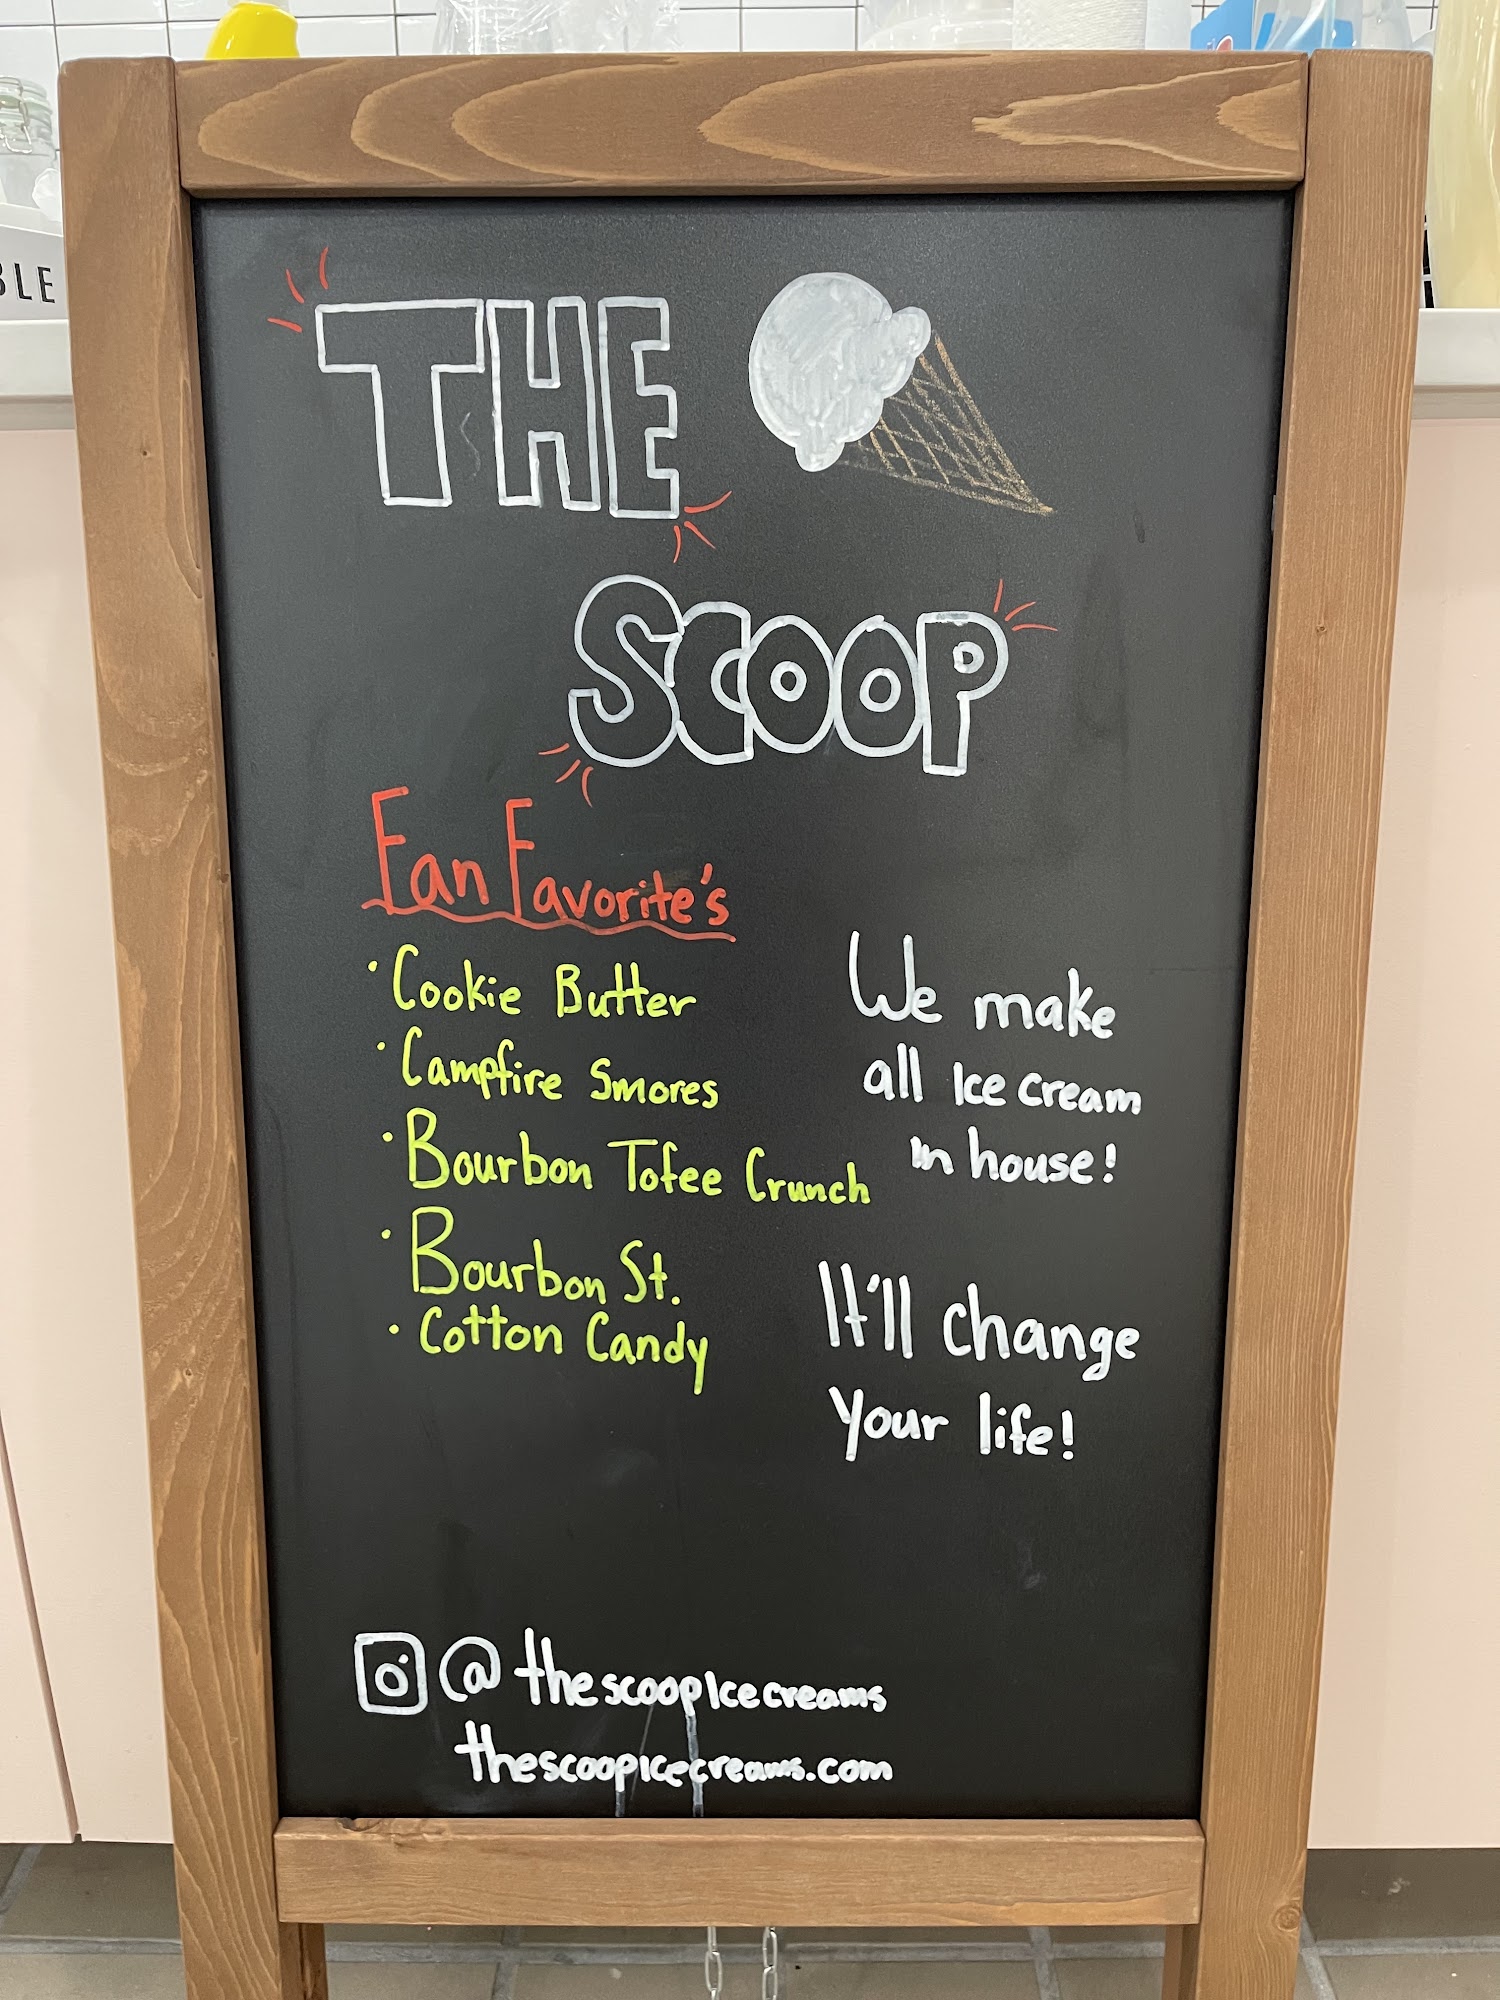 THE
SCOOP
Fan Favorite's
· Cookie Butter
· Campfire Smores
· Bourbon Tofee Crunch
· Bourbon St.
· Cotton Candy
We make
all Ice cream
in house!
It'll change
your life!
@thescoopIcecreams
thescoopIcecreams.com
BLE